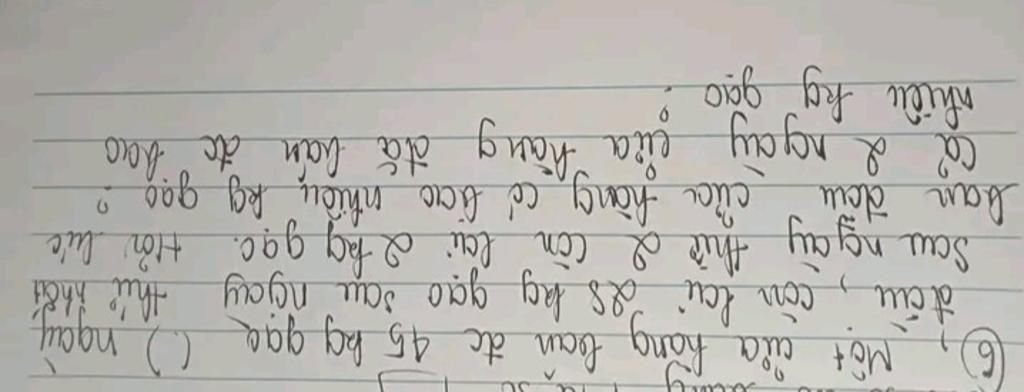 6), Một cửa hàng bán đc 45 kg gạo (.) ngày
đầu, còn lại 25 kg gạo sau ngày thứ nhất
sau ngày thứ 2 còn lại 2 kg gạo. Hỏi lúc
ban đầu cửa hàng có bao nhiêu kg gạo ?
Cả 2 ngày cửa hàng đã bán đc bao
nhiêu kg gạo ?